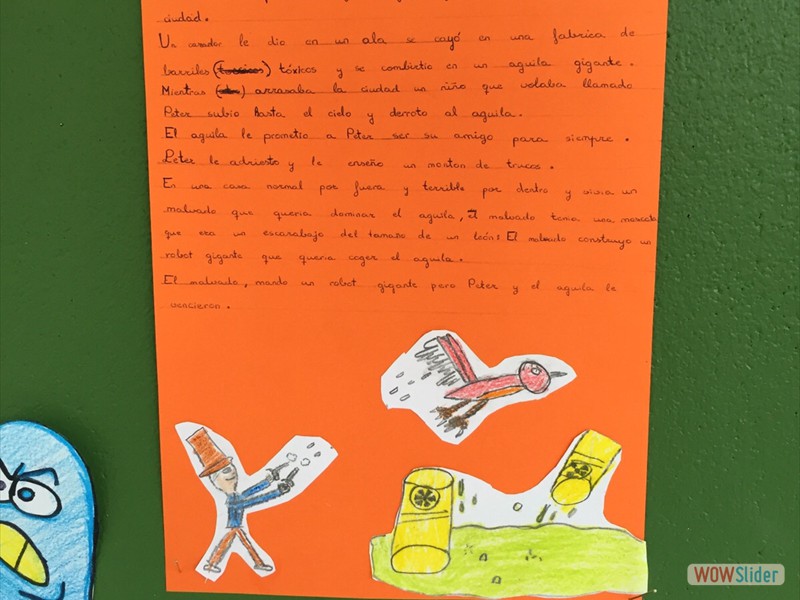 ciudad.
Un cazador le dio en un ala se cayó en una fabrica de
barriles (toxicos) tóxicos y se combirtio en un aguila gigante.
Mientras arrasaba la ciudad un niño que volaba llamado
Peter subio hasta el cielo y derroto al aguila.
El aguila le prometio a Peter ser su amigo para siempre.
Peter le adriesto y le enseño un monton de trucos.
En una casa normal por fuera y terrible por dentro y vivia un
malvado que queria dominar el aguila, el malvado tenia una mascota
que era un escarabajo del tamaño de un león. El malvado construyo un
robot gigante que queria coger el aguila.
El malvado, mando un robot gigante pero Peter y el aguila le
vencieron.
WOWSlider